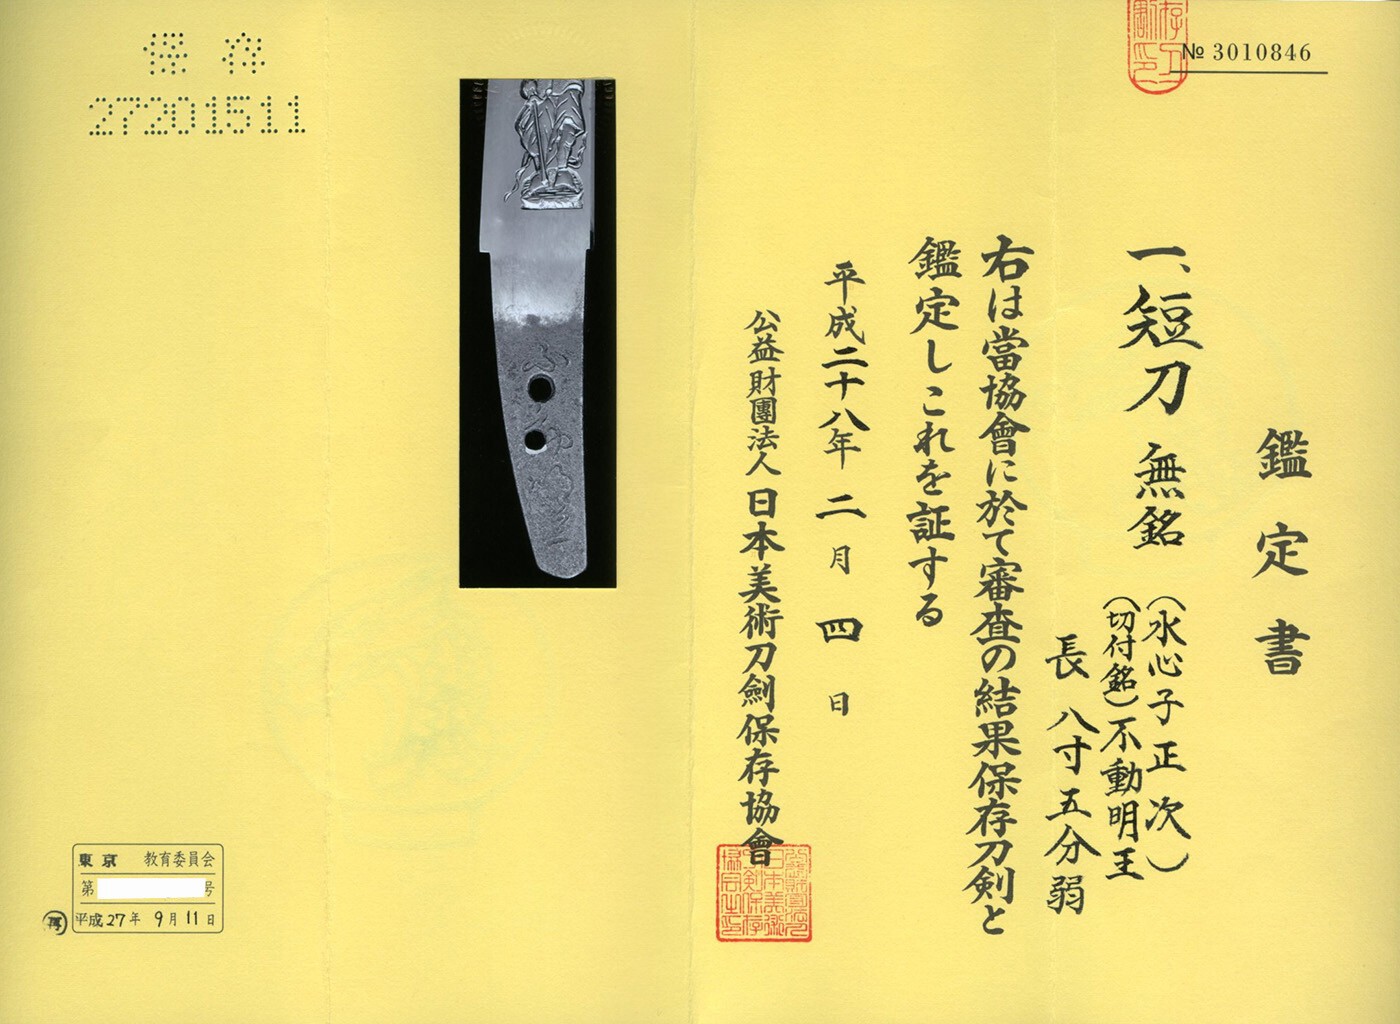 № 3010846
鑑定書
一、短刀 無銘 (水心子正次)
(切付銘)不動明王
長 八寸五分弱
右は當協會に於て審査の結果保存刀剣と
鑑定しこれを証する
平成二十八年 二月 四日
公益財團法人 日本美術刀劍保存協會
保存
27201511
東京 教育委員会
第 号
平成27年 9月11日